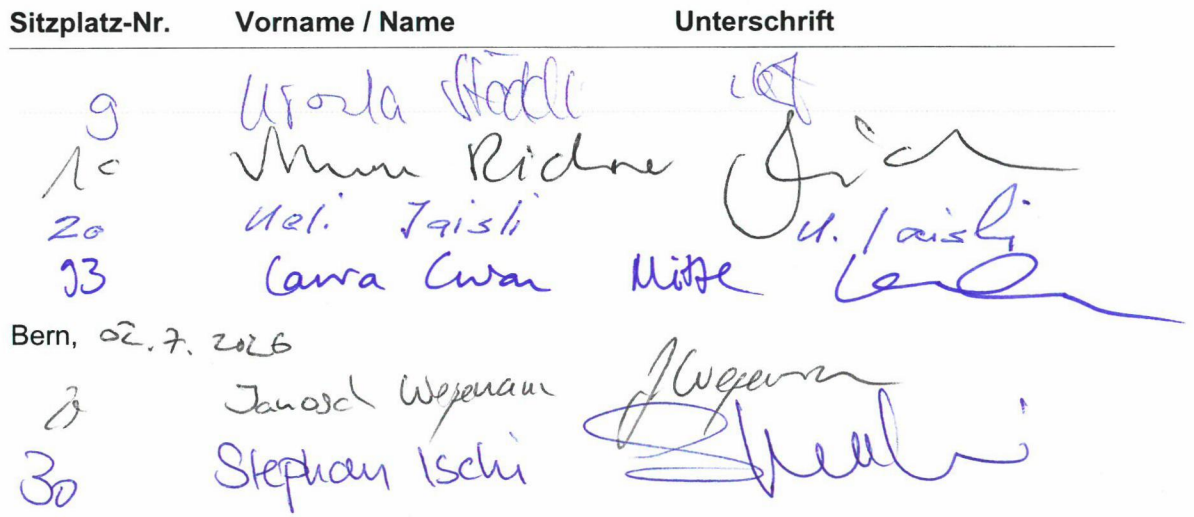 Sitzplatz-Nr. Vorname / Name Unterschrift
9 Ursula Stöckli
10 Richner
20 Ueli Jaisli U. Jaisli
93 Laura Curau Mitte
Bern, 02.7.2026
Janosch Weyermann J Weyermann
30 Stephan Ischi